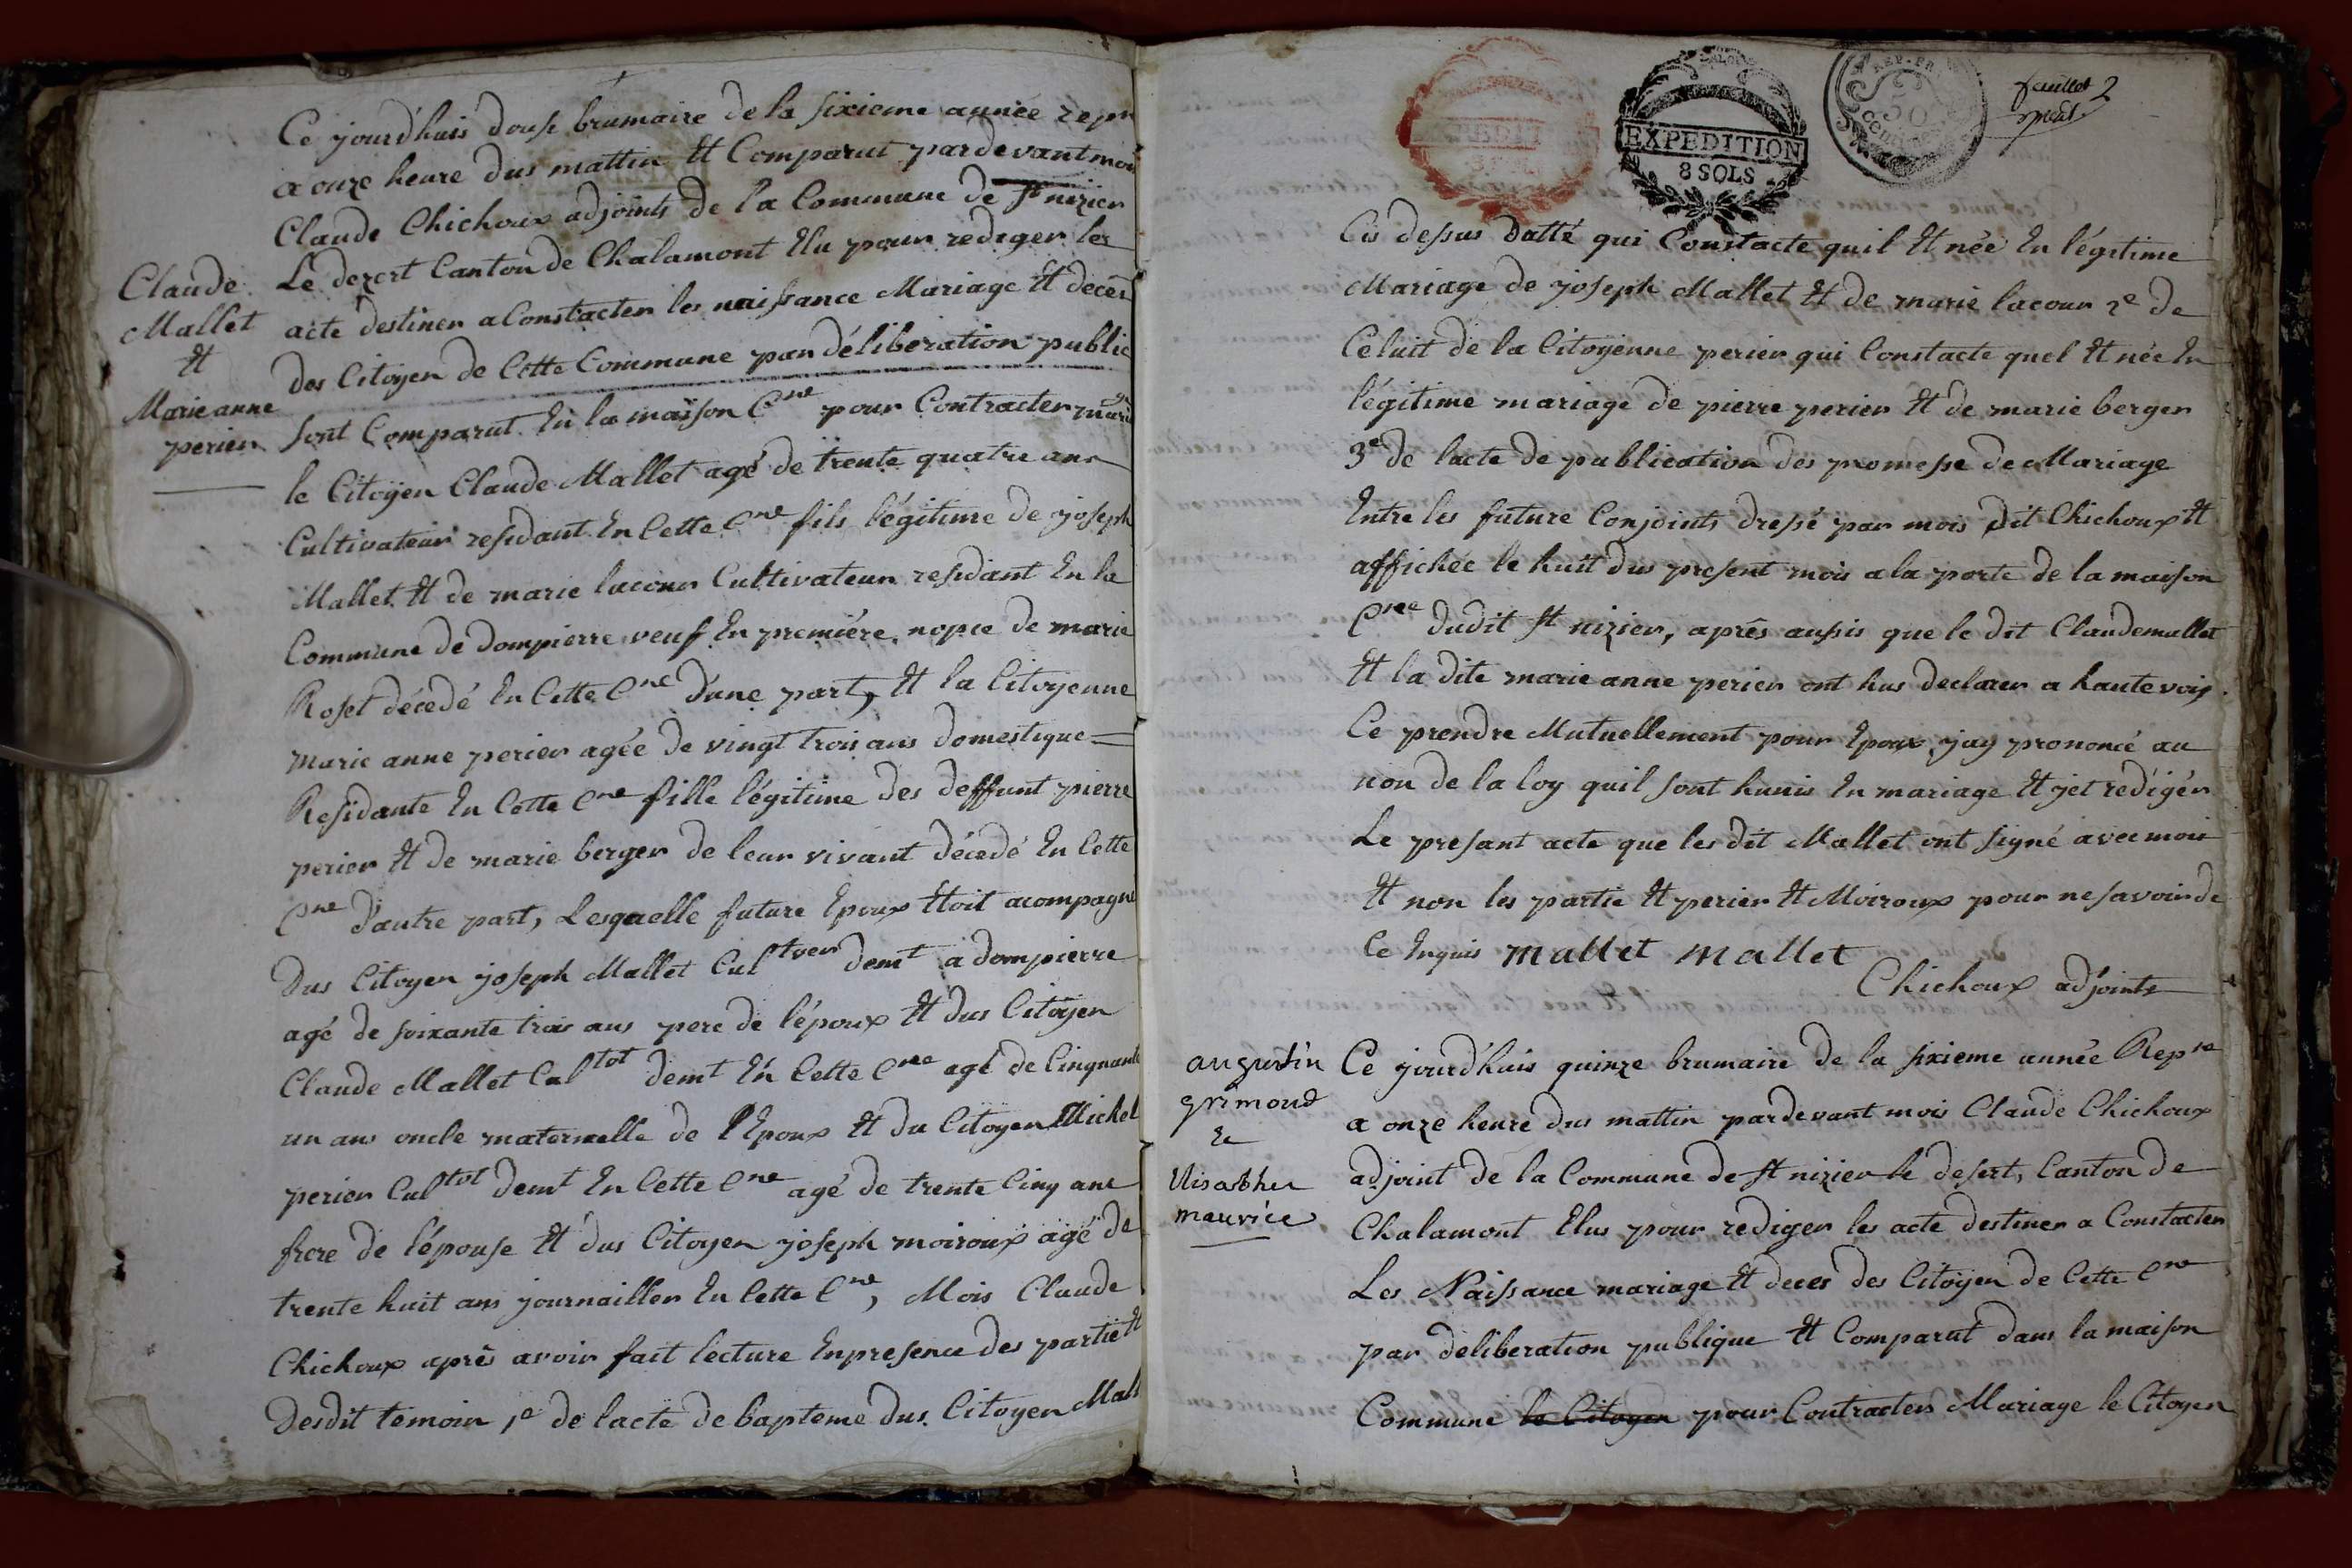 Ce jourd'huis douse brumaire de la sixieme année repu
a onze heure dus mattin Et Comparut pardevant mois
Claude Chichoux adjoints de la Commune de St nizier
Le dezert Canton de Chalamont Elu pour rediger les
acte destiner a Constacter les naissance Mariage Et décès
des Citoyen de Cette Commune par déliberation public
sont Comparut En la maison Cne pour Contracter mari
le Citoyen Claude Mallet agé de trente quatre ans
Cultivateur residant En Cette Cne fils légitime de joseph
Mallet Et de marie lacour Cultivateur residant En la
Commune de dompierre veuf En premiére nopce de marie
Roset décédé En Cette Cne d'une part, Et la Citoyenne
marie anne perier agée de vingt trois ans domestique =
Residante En Cette Cne fille légitime des deffunt pierre
perier Et de marie berger de leur vivant décedé En Cette
Cne d'autre part, Lesquelle future Epoux Etoit acompagné
Dus Citoyen joseph Mallet Cultver demt a dompierre
agé de soixante trois ans pere de l'époux Et dus Citoyen
Claude Mallet Cultot demt En Cette Cne agé de Cinquante
un ans oncle maternelle de l'Epoux Et du Citoyen Michel
perier Cultot demt En Cette Cne agé de trente Cinq ans
frere de l'épouse Et dus Citoyen joseph moiroux agé de
trente huit ans journaillier En Cette Cne, Mois Claude
Chichoux aprês avoir fait lecture Enpresence des partie Et
Desdit temoin 1e de lacte de bapteme dus Citoyen Mall
Claude
Mallet
Et
Marie anne
perier
EXPEDITION
8 SOLS
REP. FR.
50
feuillet 2
Cis dessus datté qui Constacte quil Et née En légitime
Mariage de joseph Mallet Et de marie lacour 2e de
Celuit de la Citoyenne perier qui Constacte quel Et née En
légitime mariage de pierre perier Et de marie berger
3e de lacte de publication des promesse de Mariage
Entre les future Conjoints dressé par mois dit Chichoux Et
affichée le huit dus present mois a la porte de la maison
Cne dudit St nizier, aprês aussis que le dit Claude mallet
Et la dite marie anne perier ont hus declarer a haute voix
Ce prendre Mutuellement pour Epoux, jay prononcé au
non de la loy quil sont hunis En mariage Et jet redigér
Le presant acte que les dit Mallet ont signé avec mois
Et non les partie Et perier Et Moiroux pour ne savoir de
Ce Enquis mallet mallet
Chichoux adjoints
augustin
grimoud
Et
Elisabher
maurice
Ce jourd'huis quinze brumaire de la sixieme année Repne
a onze heure dus mattin pardevant mois Claude Chichoux
adjoint de la Commune de St nizier le desert, Canton de
Chalamont Elus pour rediger les acte destiner a Constacter
Les Naissance mariage Et deces des Citoyen de Cette Cne
par deliberation publique Et Comparut dans la maison
Commune le Citoyen pour Contracter Mariage le Citoyen